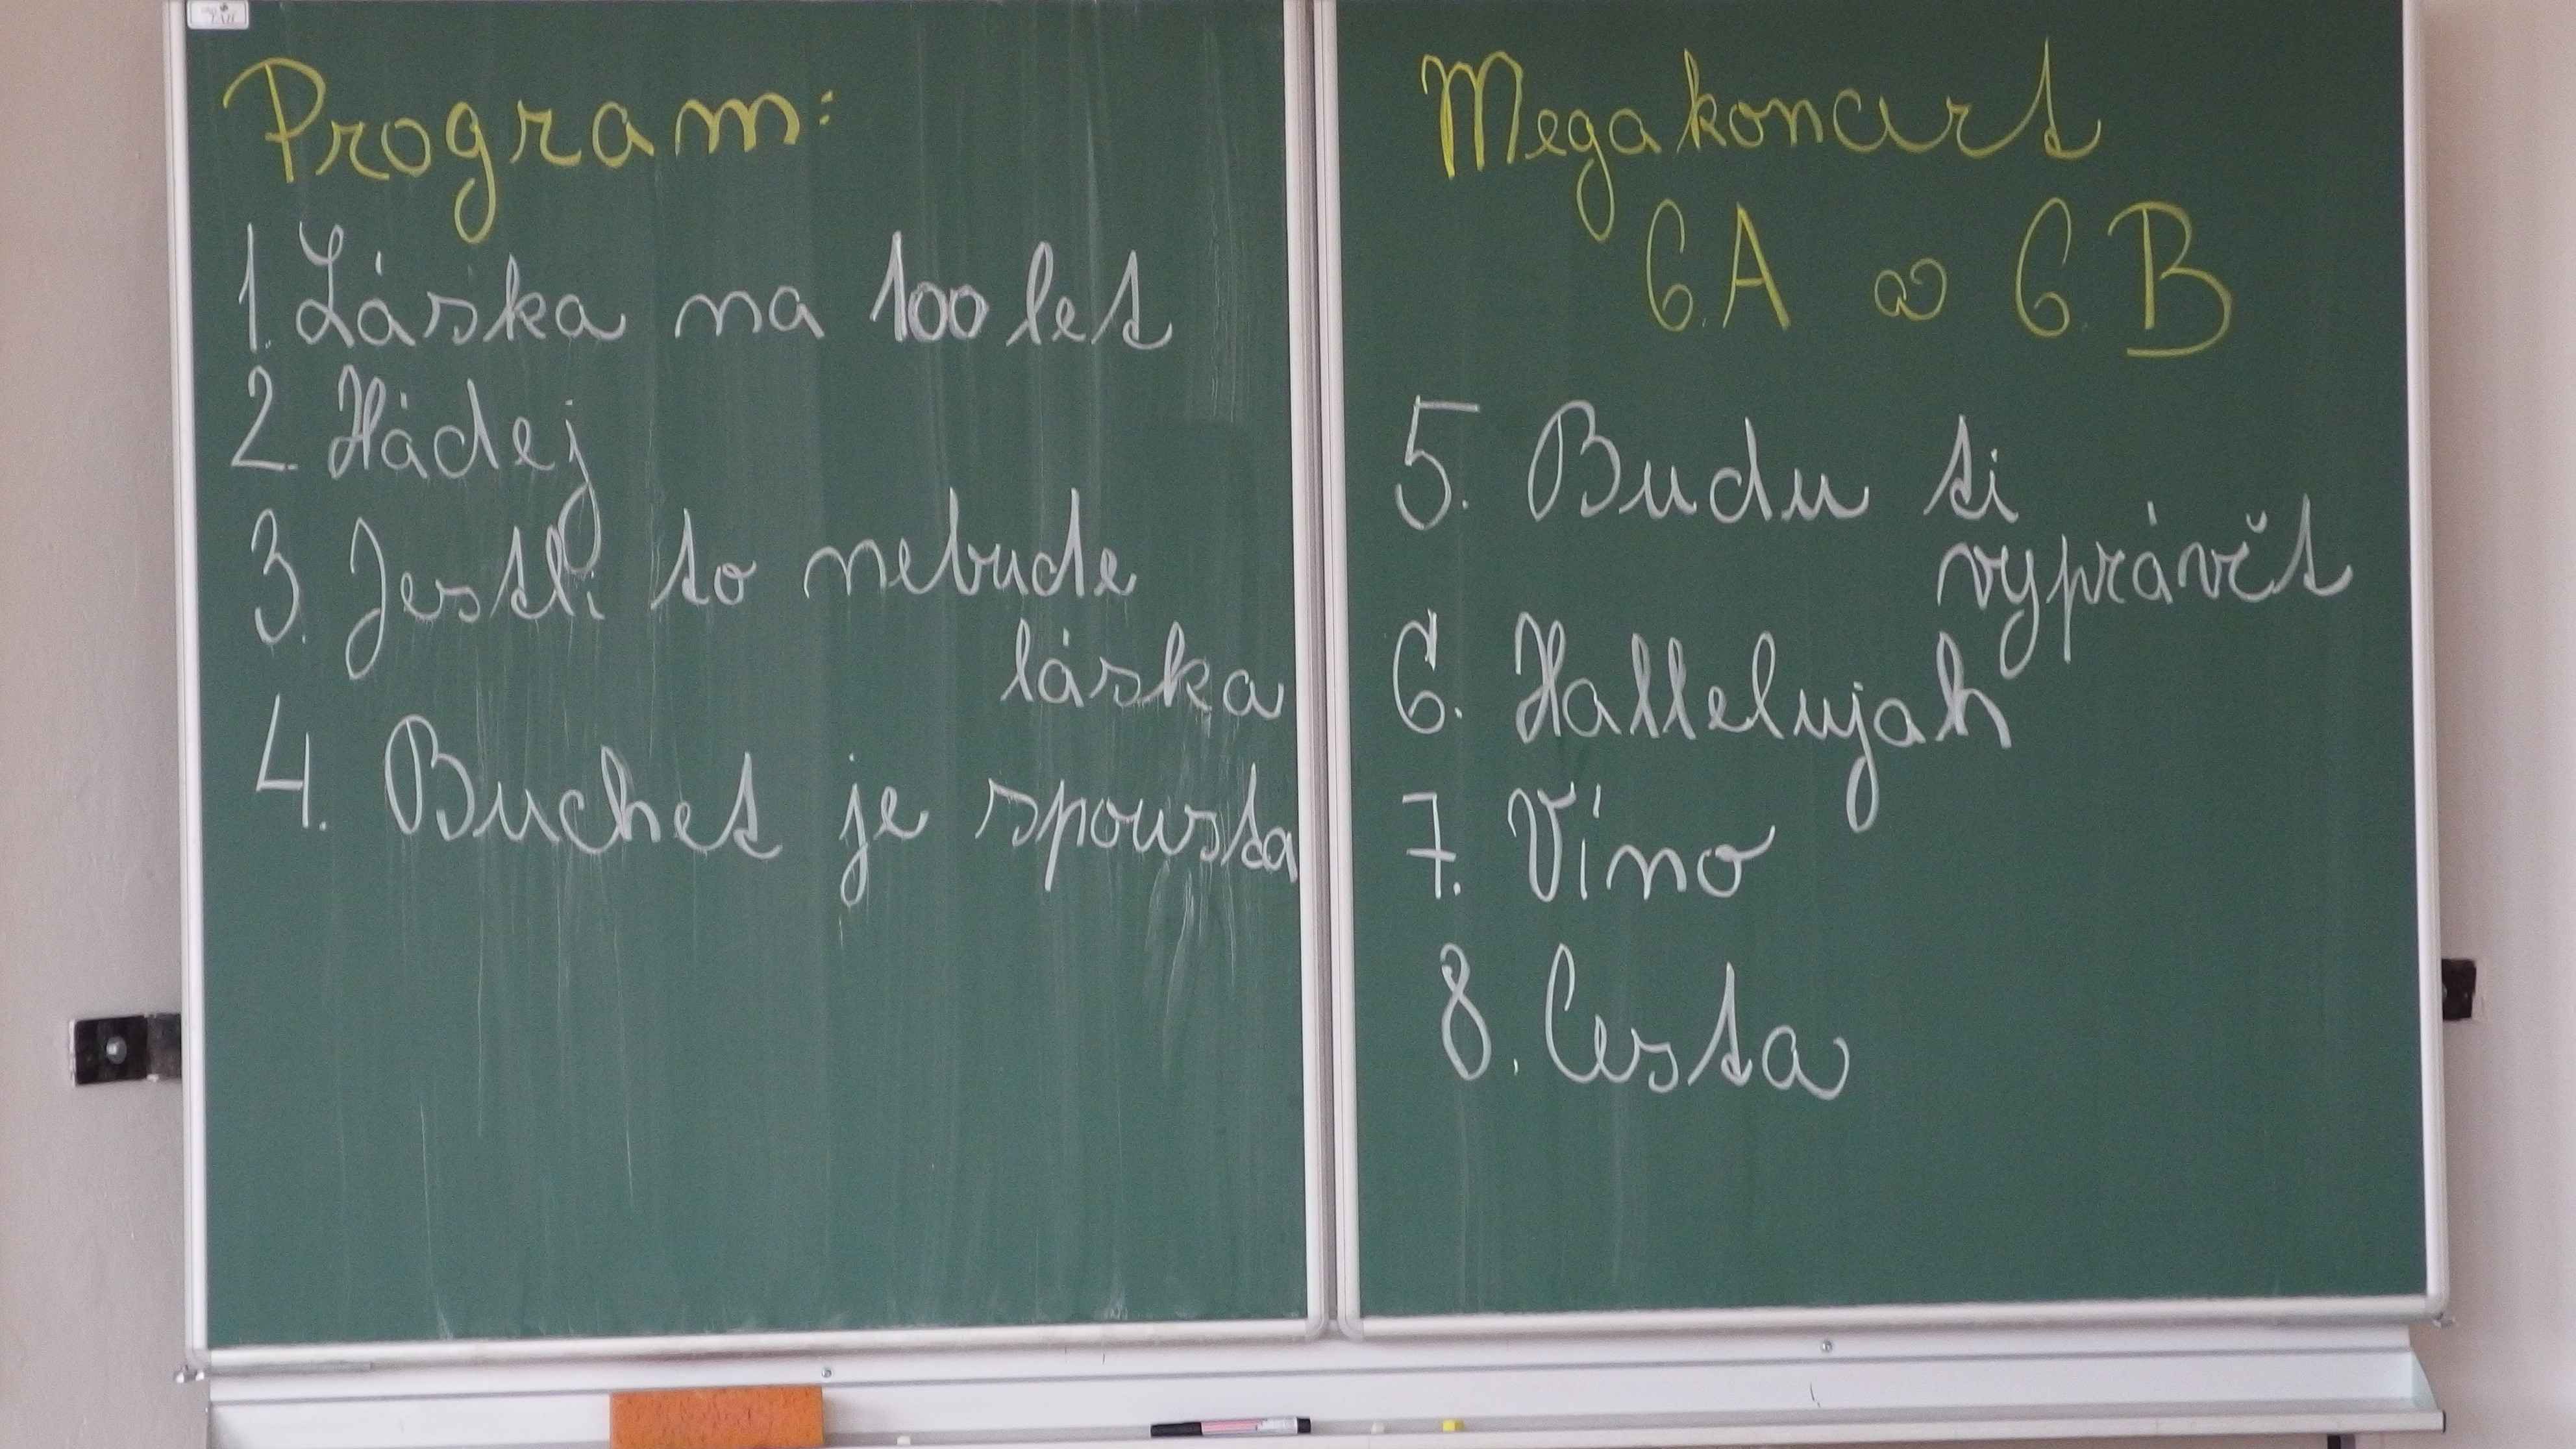 Program:
1. Láska na 100 let
2. Hádej
3. Jestli to nebude
láska
4. Buchet je spousta
Megakoncert
6.A a 6.B
5. Budu si
vyprávět
6. Hallelujah
7. Víno
8. Cesta